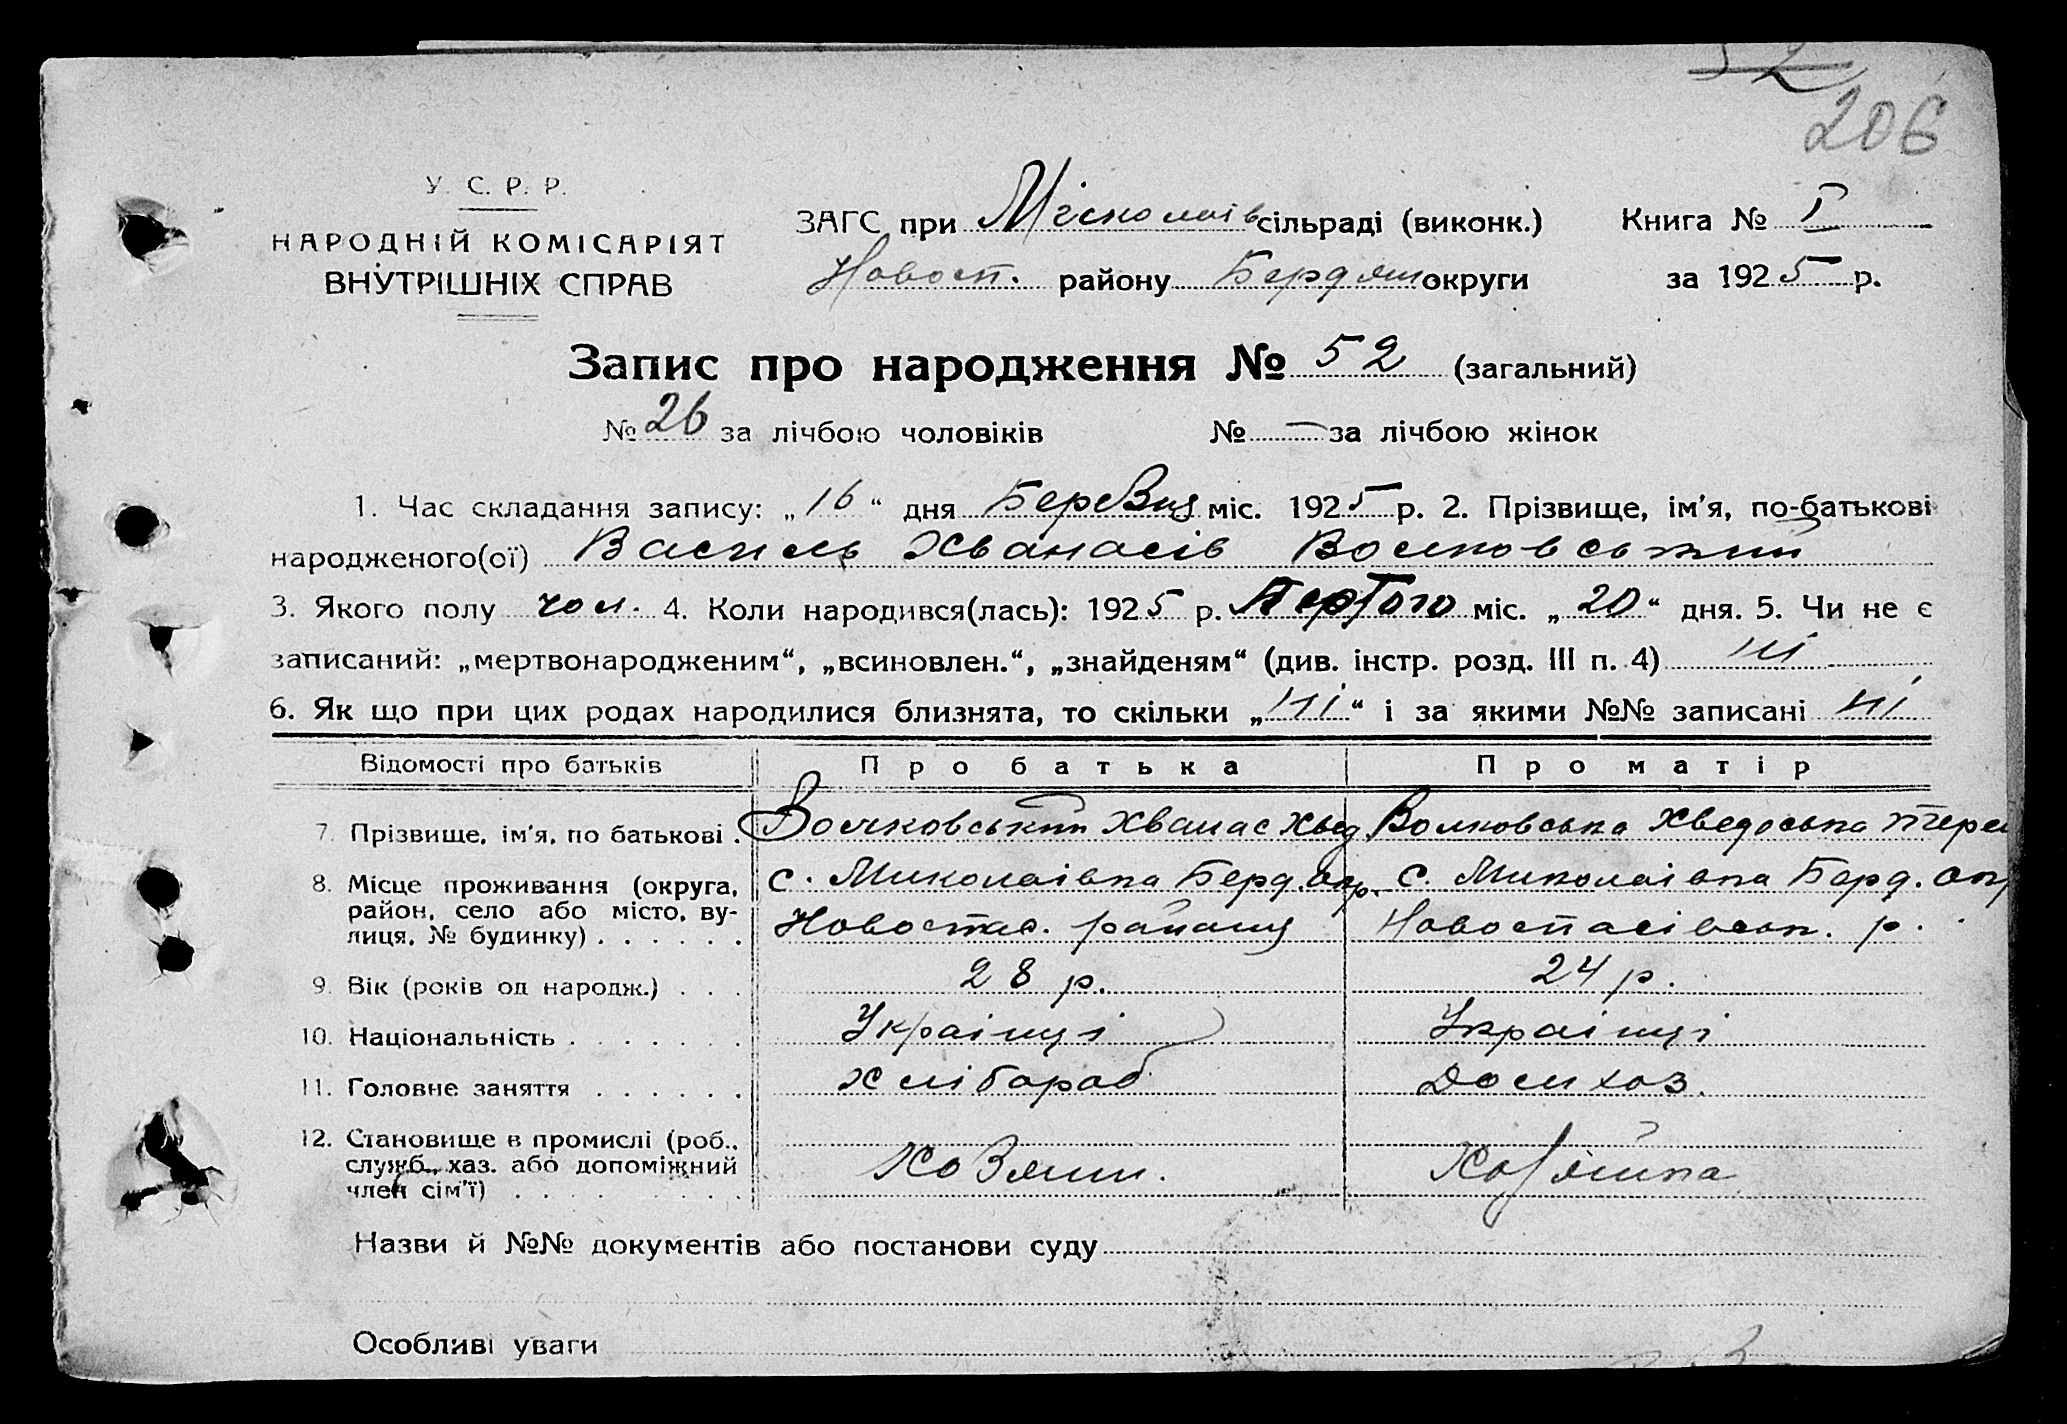 52
206
У. С. Р. Р.
НАРОДНІЙ КОМІСАРІЯТ
ВНУТРІШНІХ СПРАВ
ЗАГС при Миколаїв сільраді (виконк.) Книга № I
Новосп. району Бердян округи за 1925 р.
Запис про народження № 52 (загальний)
№ 26 за лічбою чоловіків № — за лічбою жінок
1. Час складання запису: „16“ дня Березня міс. 1925 р. 2. Прізвище, ім'я, по-батькові
народженого(ої) Василь Хванасів Волковський
3. Якого полу чол. 4. Коли народився(лась): 1925 р. Лютого міс. „20“ дня. 5. Чи не є
записаний: „мертвонародженим“, „всиновлен.“, „знайденям“ (див. інстр. розд. III п. 4) ні
6. Як що при цих родах народилися близнята, то скільки „ні“ і за якими №№ записані ні
Відомості про батьків Про батька Про матір
7. Прізвище, ім'я, по батькові . Волковський Хванас Хвед Волковська Хведоська
8. Місце проживання (округа, с. Миколаівка Берд. окр. с. Миколаівка Берд. окр
район, село або місто, ву-
лиця, № будинку) . . . . . . Новоспас. району Новоспасівськ. р.
9. Вік (років од народж.) . . . 28 р. 24 р.
10. Національність . . . . . . . Украінці Украінці
11. Головне заняття . . . . . . Хлібороб Домхоз.
12. Становище в промислі (роб.,
служб., хаз. або допоміжний Хозяин. Хозяйка
член сім'ї) . . . . . . . .
Назви й №№ документів або постанови суду
Особливі уваги